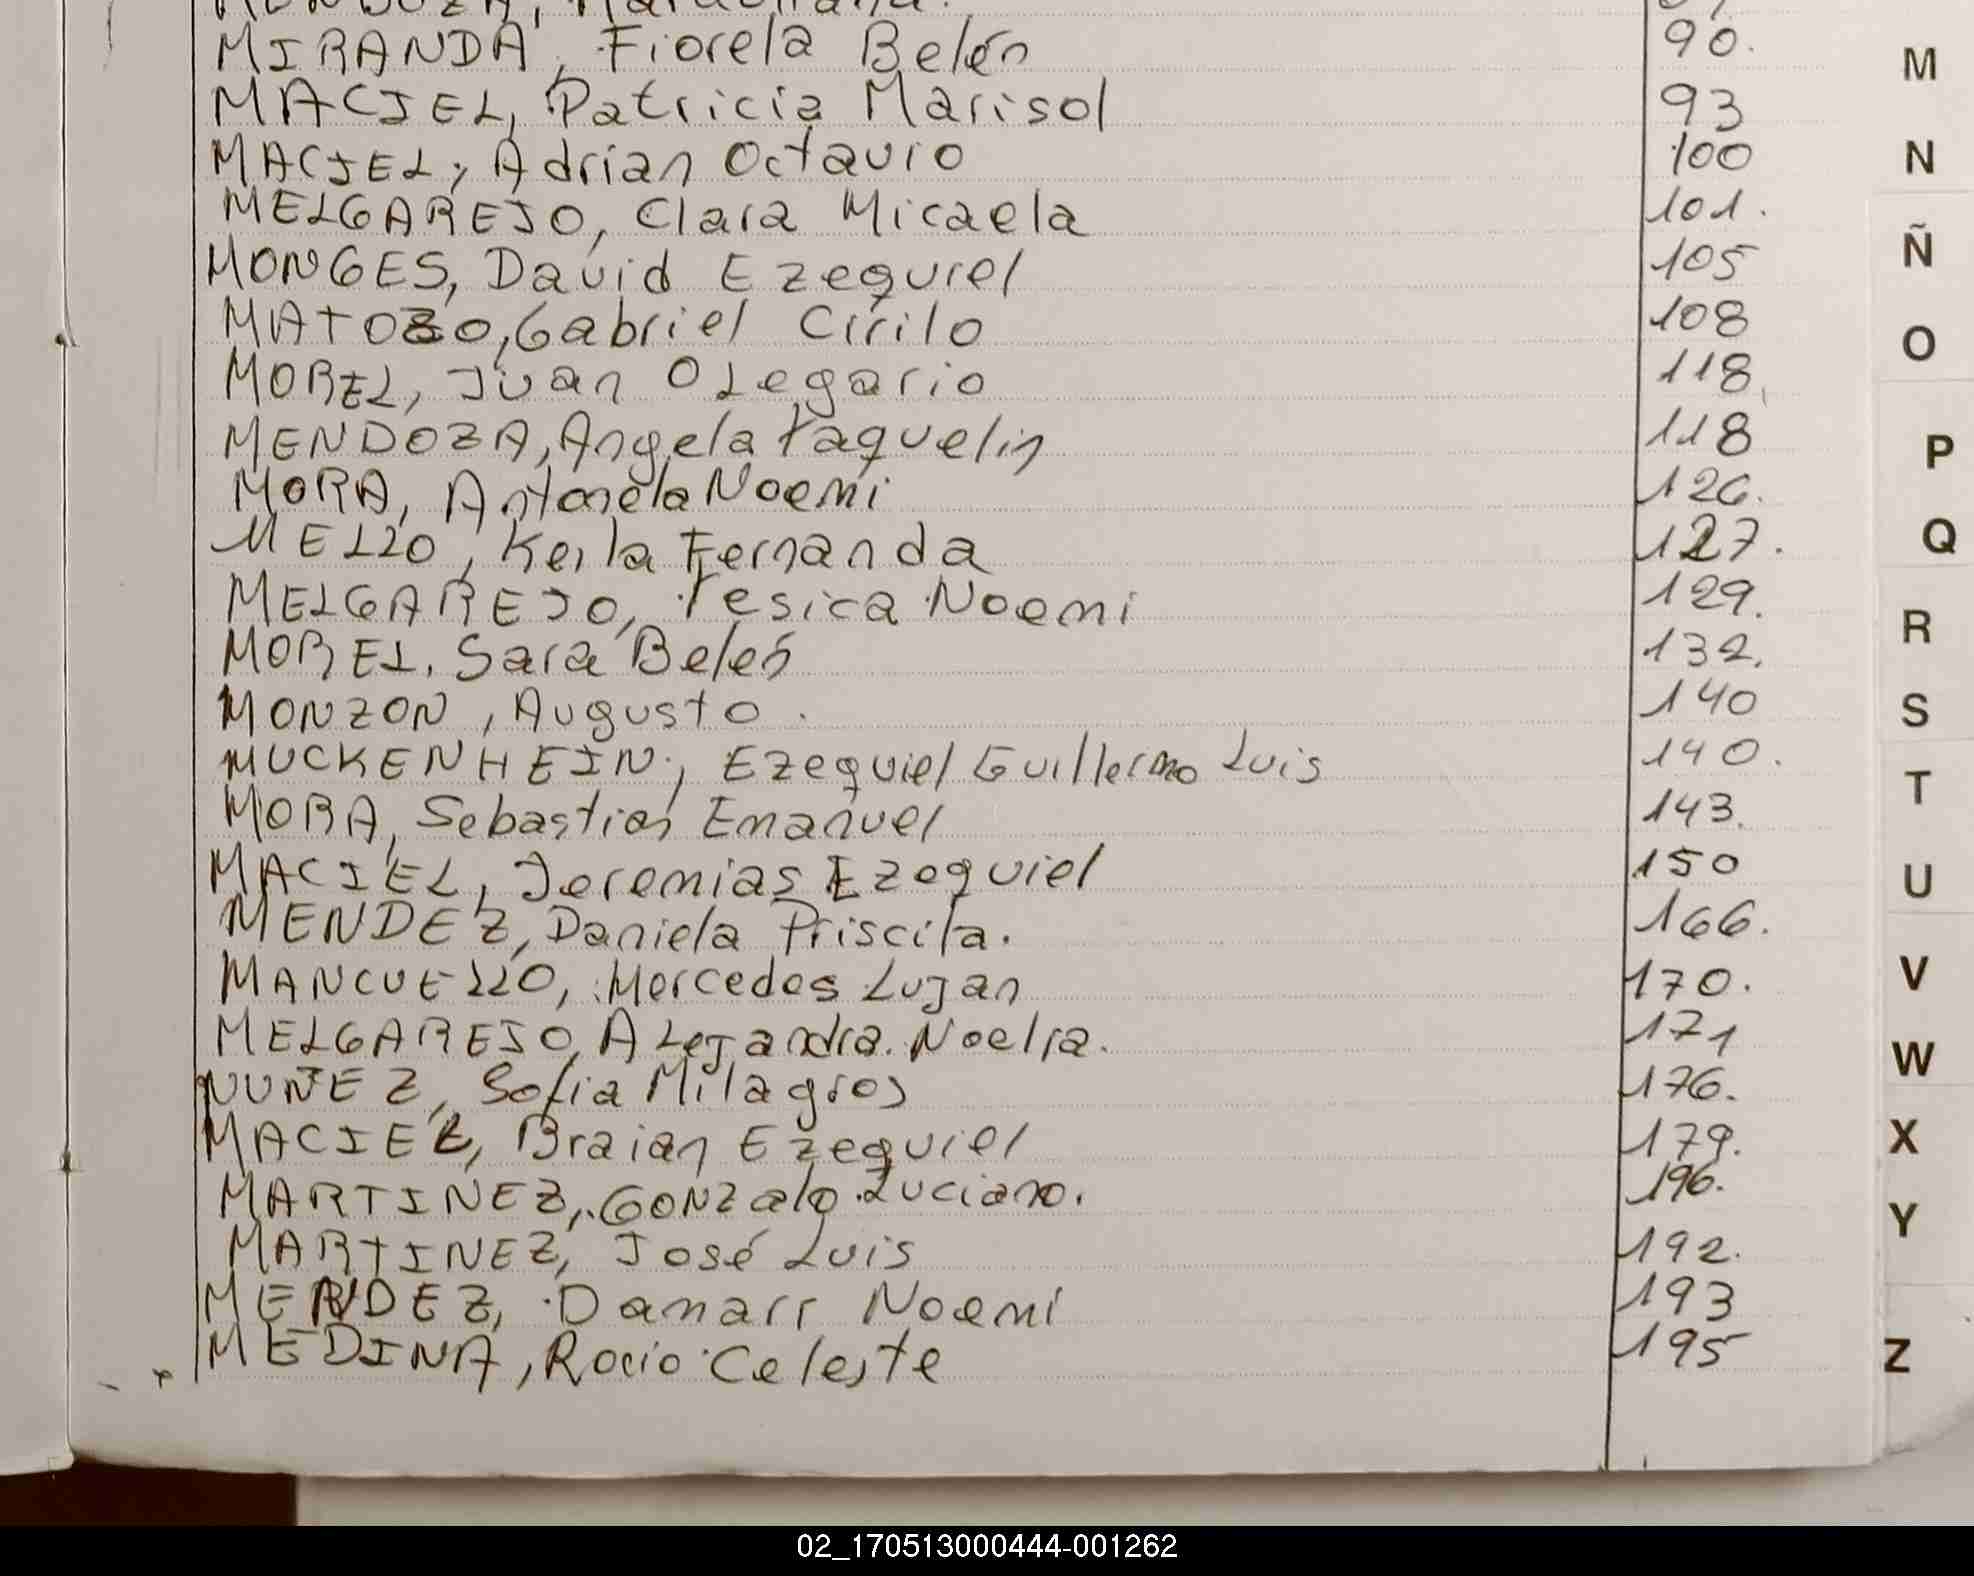 MIRANDA, Fiorela Belén 90.
MACIEL, Patricia Marisol 93
MACIEL, Adrian Octavio 100
MELGAREJO, Clara Micaela 101.
MONGES, David Ezequiel 105
MATOZO, Gabriel Cirilo 108
MOREL, Juan Olegario 118
MENDOZA, Angela Yaquelin 118
MORA, Antonela Noemi 126.
MELLO, Keila Fernanda 127.
MELGAREJO, Yesica Noemi 129.
MOREL, Sara Belén 132.
MONZON, Augusto. 140
MUCKENHEIN, Ezequiel Guillermo Luis 140.
MORA, Sebastian Emanuel 143.
MACIEL, Jeremias Ezequiel 150
MENDEZ, Daniela Priscila. 166.
MANCUELLO, Mercedes Lujan 170.
MELGAREJO, Alejandra Noelia. 171
NUÑEZ, Sofia Milagros 176.
MACIEL, Braian Ezequiel 179.
MARTINEZ, Gonzalo Luciano. 196.
MARTINEZ, José Luis 192.
MENDEZ, Damari Noemi 193
MEDINA, Rocio Celeste 195
M
N
Ñ
O
P
Q
R
S
T
U
V
W
X
Y
Z
02_170513000444-001262